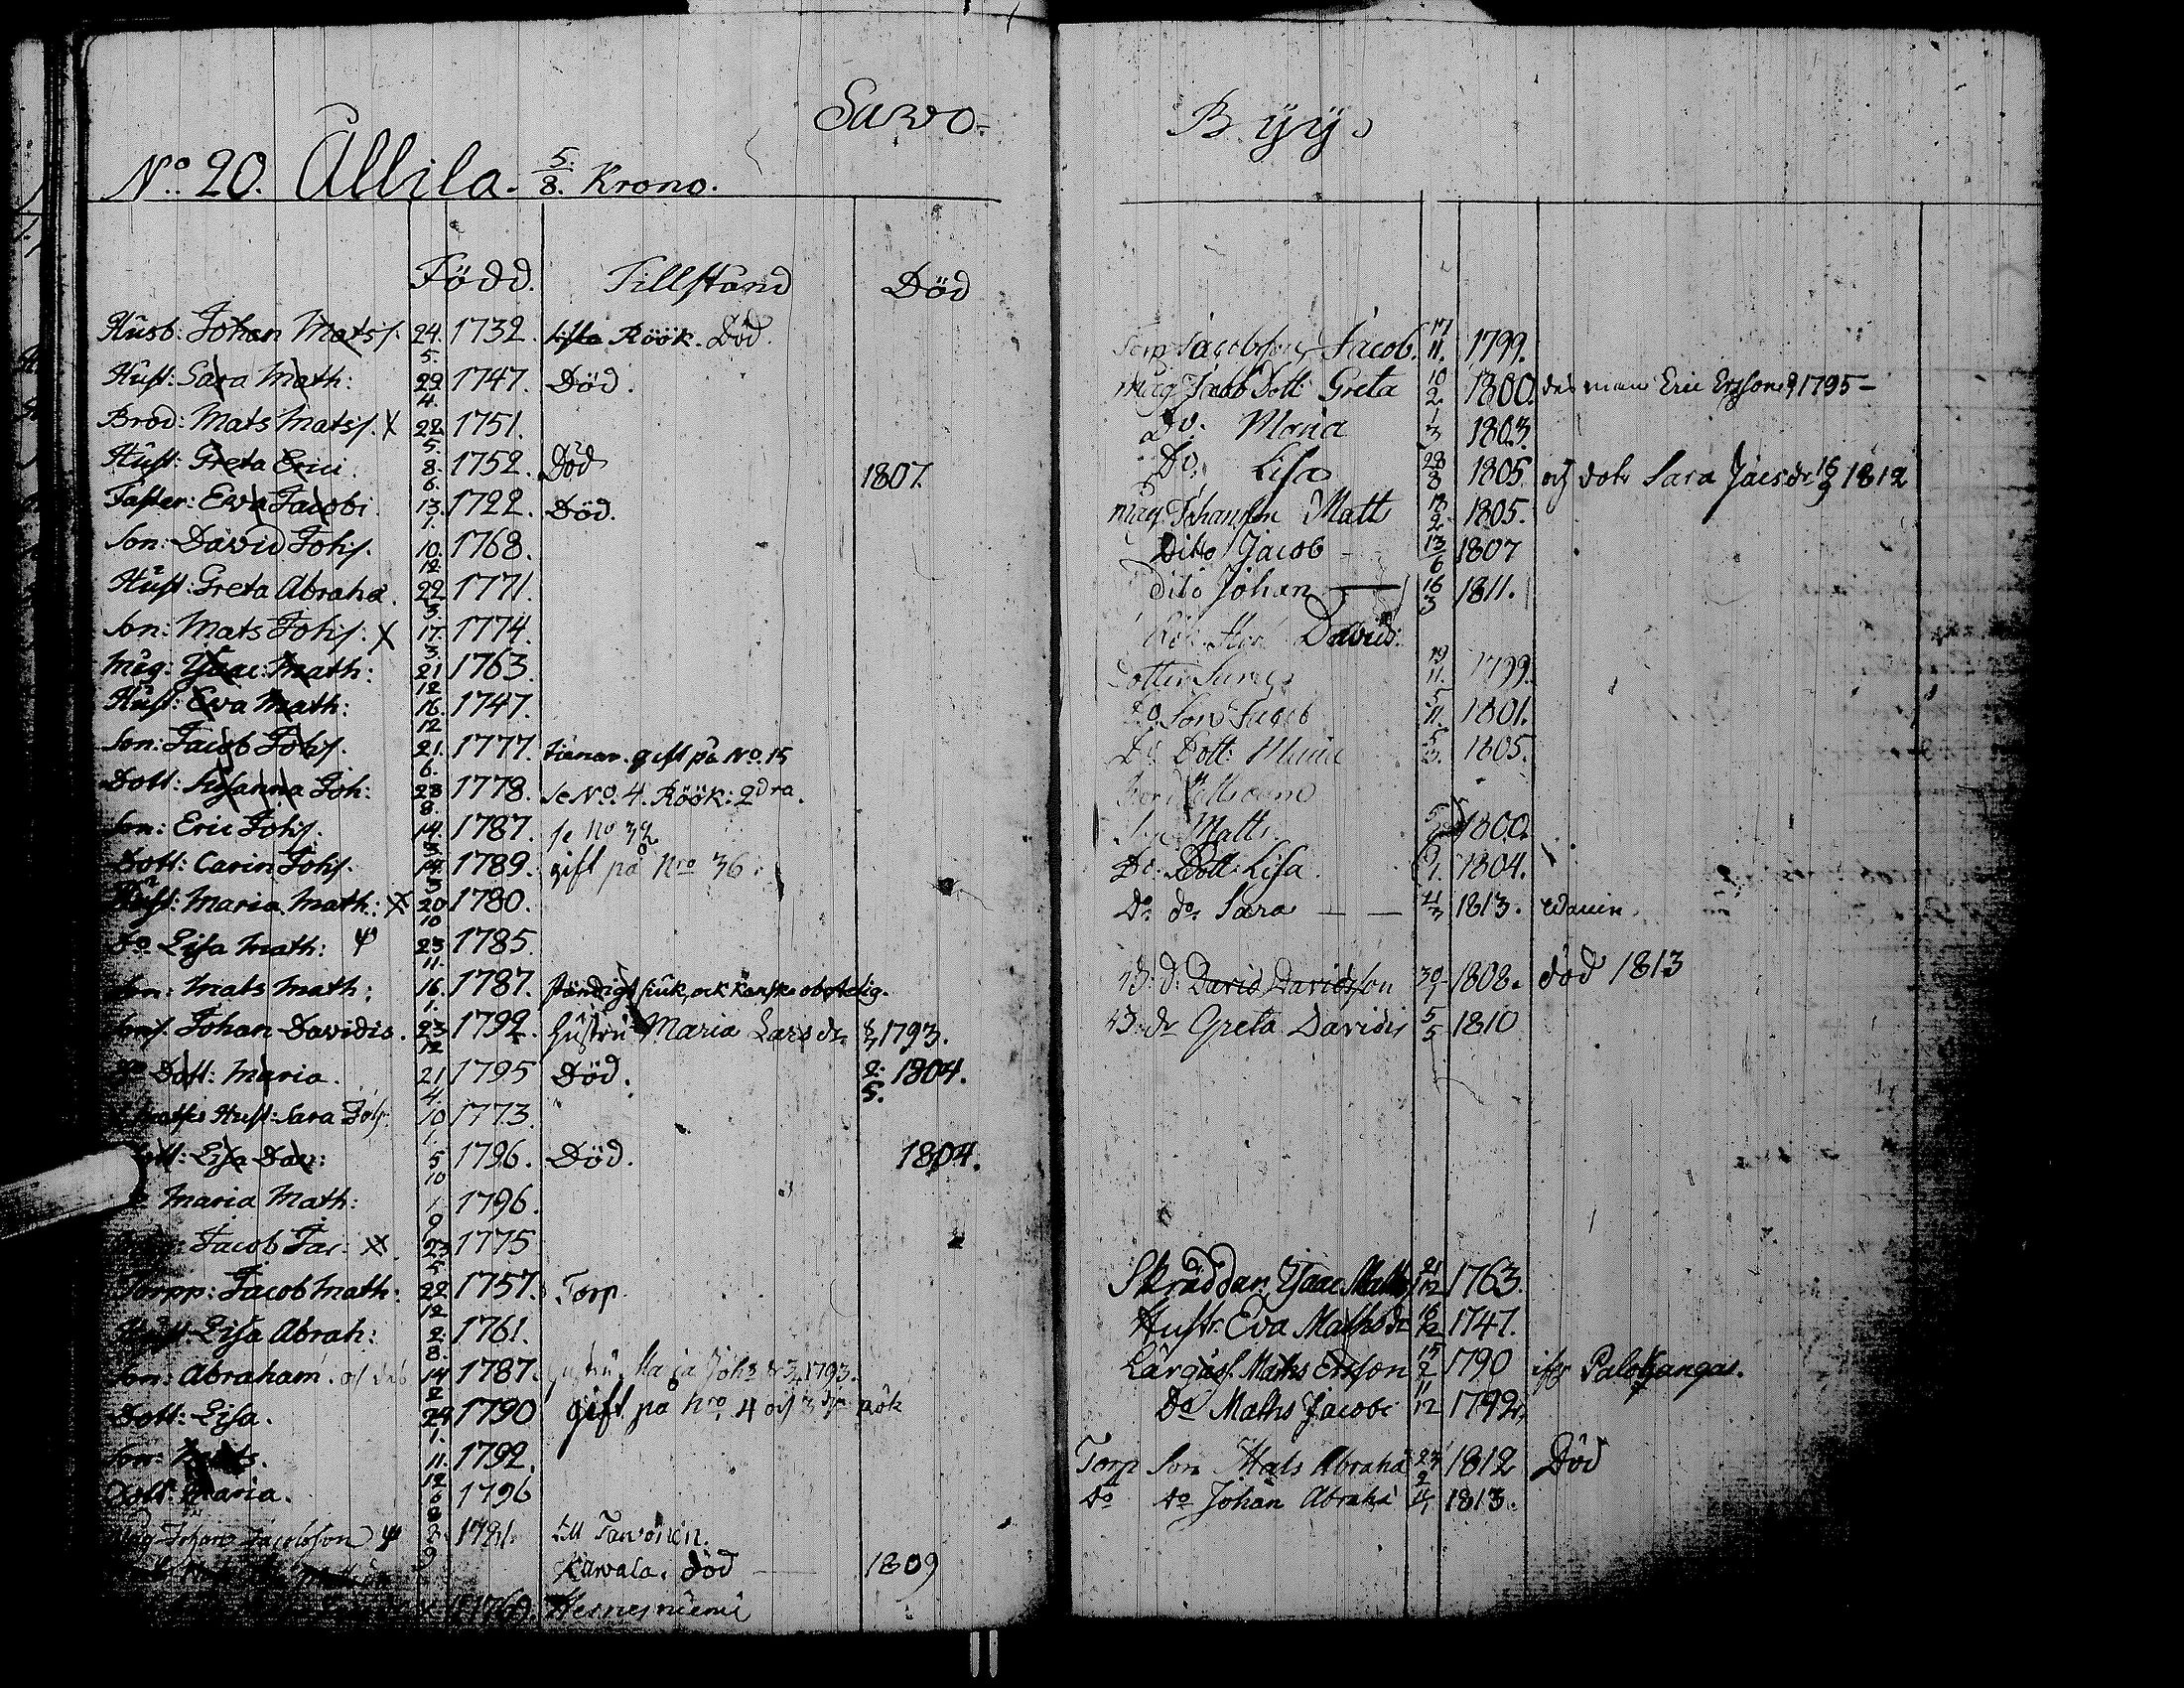 Sawo-
No. 20. Allila. 5/8. Krono.
Född. Tillstand Död
Husb: Johan Matss. 24. 5. 1732. sista Röök. Död.
Hust: Sara Math: 29 4. 1747. Död.
Brod: Mats Matss. X 22 5. 1751.
Hust: Greta Erici 8. 6. 1752. Död 1807.
Faster: Ewa Jacobi 13. 1. 1722. Död.
Son: David Johs. 10. 12. 1768.
Hust: Greta Abraha. 22 3. 1771.
Son: Mats Johs. X 17. 3. 1774.
Måg: Isaac: Math: 21 12 1763.
Hust: Ewa Math: 16. 12 1747.
Son: Jacob Johs. 21. 6. 1777. tienar. gift på No. 15
Dott: Susanna Joh: 28 8. 1778. se No. 4. Röök: 2dra.
Son: Eric Johs. 14. 3. 1787. se No 32
Dott: Carin Johs. 14. 3 1789. gift på Nro 36.
Hust: Maria Math: X 20 10 1780.
Do Lisa Math: 23 11. 1785.
Son: Mats Math: 16. 1. 1787. ständigt siuk, ock kanske obotelig.
Sons. Johan Davidis. 23 12 1792. Hustru Maria Lars dr 1793.
Do Dott: Maria. 21 4. 1795 Död. 2. 5. 1804.
Matses Hust: Sara Johs. 10 1. 1773.
Dott: Lisa Dav: 5 10 1796. Död. 1804.
Maria Math: 1 9 1796.
Jacob Jac. X 23 5 1775
Torpp: Jacob Math: 22 12 1757. Torp.
Hust: Lisa Abrah: 2. 8. 1761.
Son: Abraham. 14 2 1787. Hustru Maja Johs dr 1793.
Dott: Lisa. 24 1. 1790 gift på Nro 4 och 3 rök
Son: Mats. 11. 12 1792.
Dott: Maria. 6 8 1796
Måg Johan Jacobsson 2. 9 1781. till Tavonen.
Kavala. död — 1809
1769. Hernesniemi
Byÿs
Torp Jacobsson Jacob. 17 11. 1799.
måg Jacob Dott Greta 10 2 1800. des man Eric Ersson 1795 –
Do. Maria 1 3 1803.
Do. Lisa 28 8 1805. och dotr Sara Jacsdr 16 1812
måg Johansson Matts 18 2 1805.
Ditto Jacob - 13 6 1807
Dito Johan — 16 3 1811.
David.
Dotter 19 11. 1799.
Do. Son Jacob 5 11. 1801.
Do. Dott: Maria 5 3. 1805.
Matts 5 1800.
Do: Dott: Lisa. 1. 1804.
Do do Sara — — 4 3 1813.
D: David Davidsson 30 1 1808. död 1813
D: dr Greta Davids 5 5 1810
Skräddar. Isaac Maths 21 12 1763.
Hustr. Eva Mathsdr 16 12 1747.
Lärgåss. Maths Ersson 15 2 1790 ifr Palokangas.
Do Maths Jacobi 11 12 1792.
Torp Son Mats Abraha 23 2 1812 Död
do do Johan Abraha 4 1 1813.